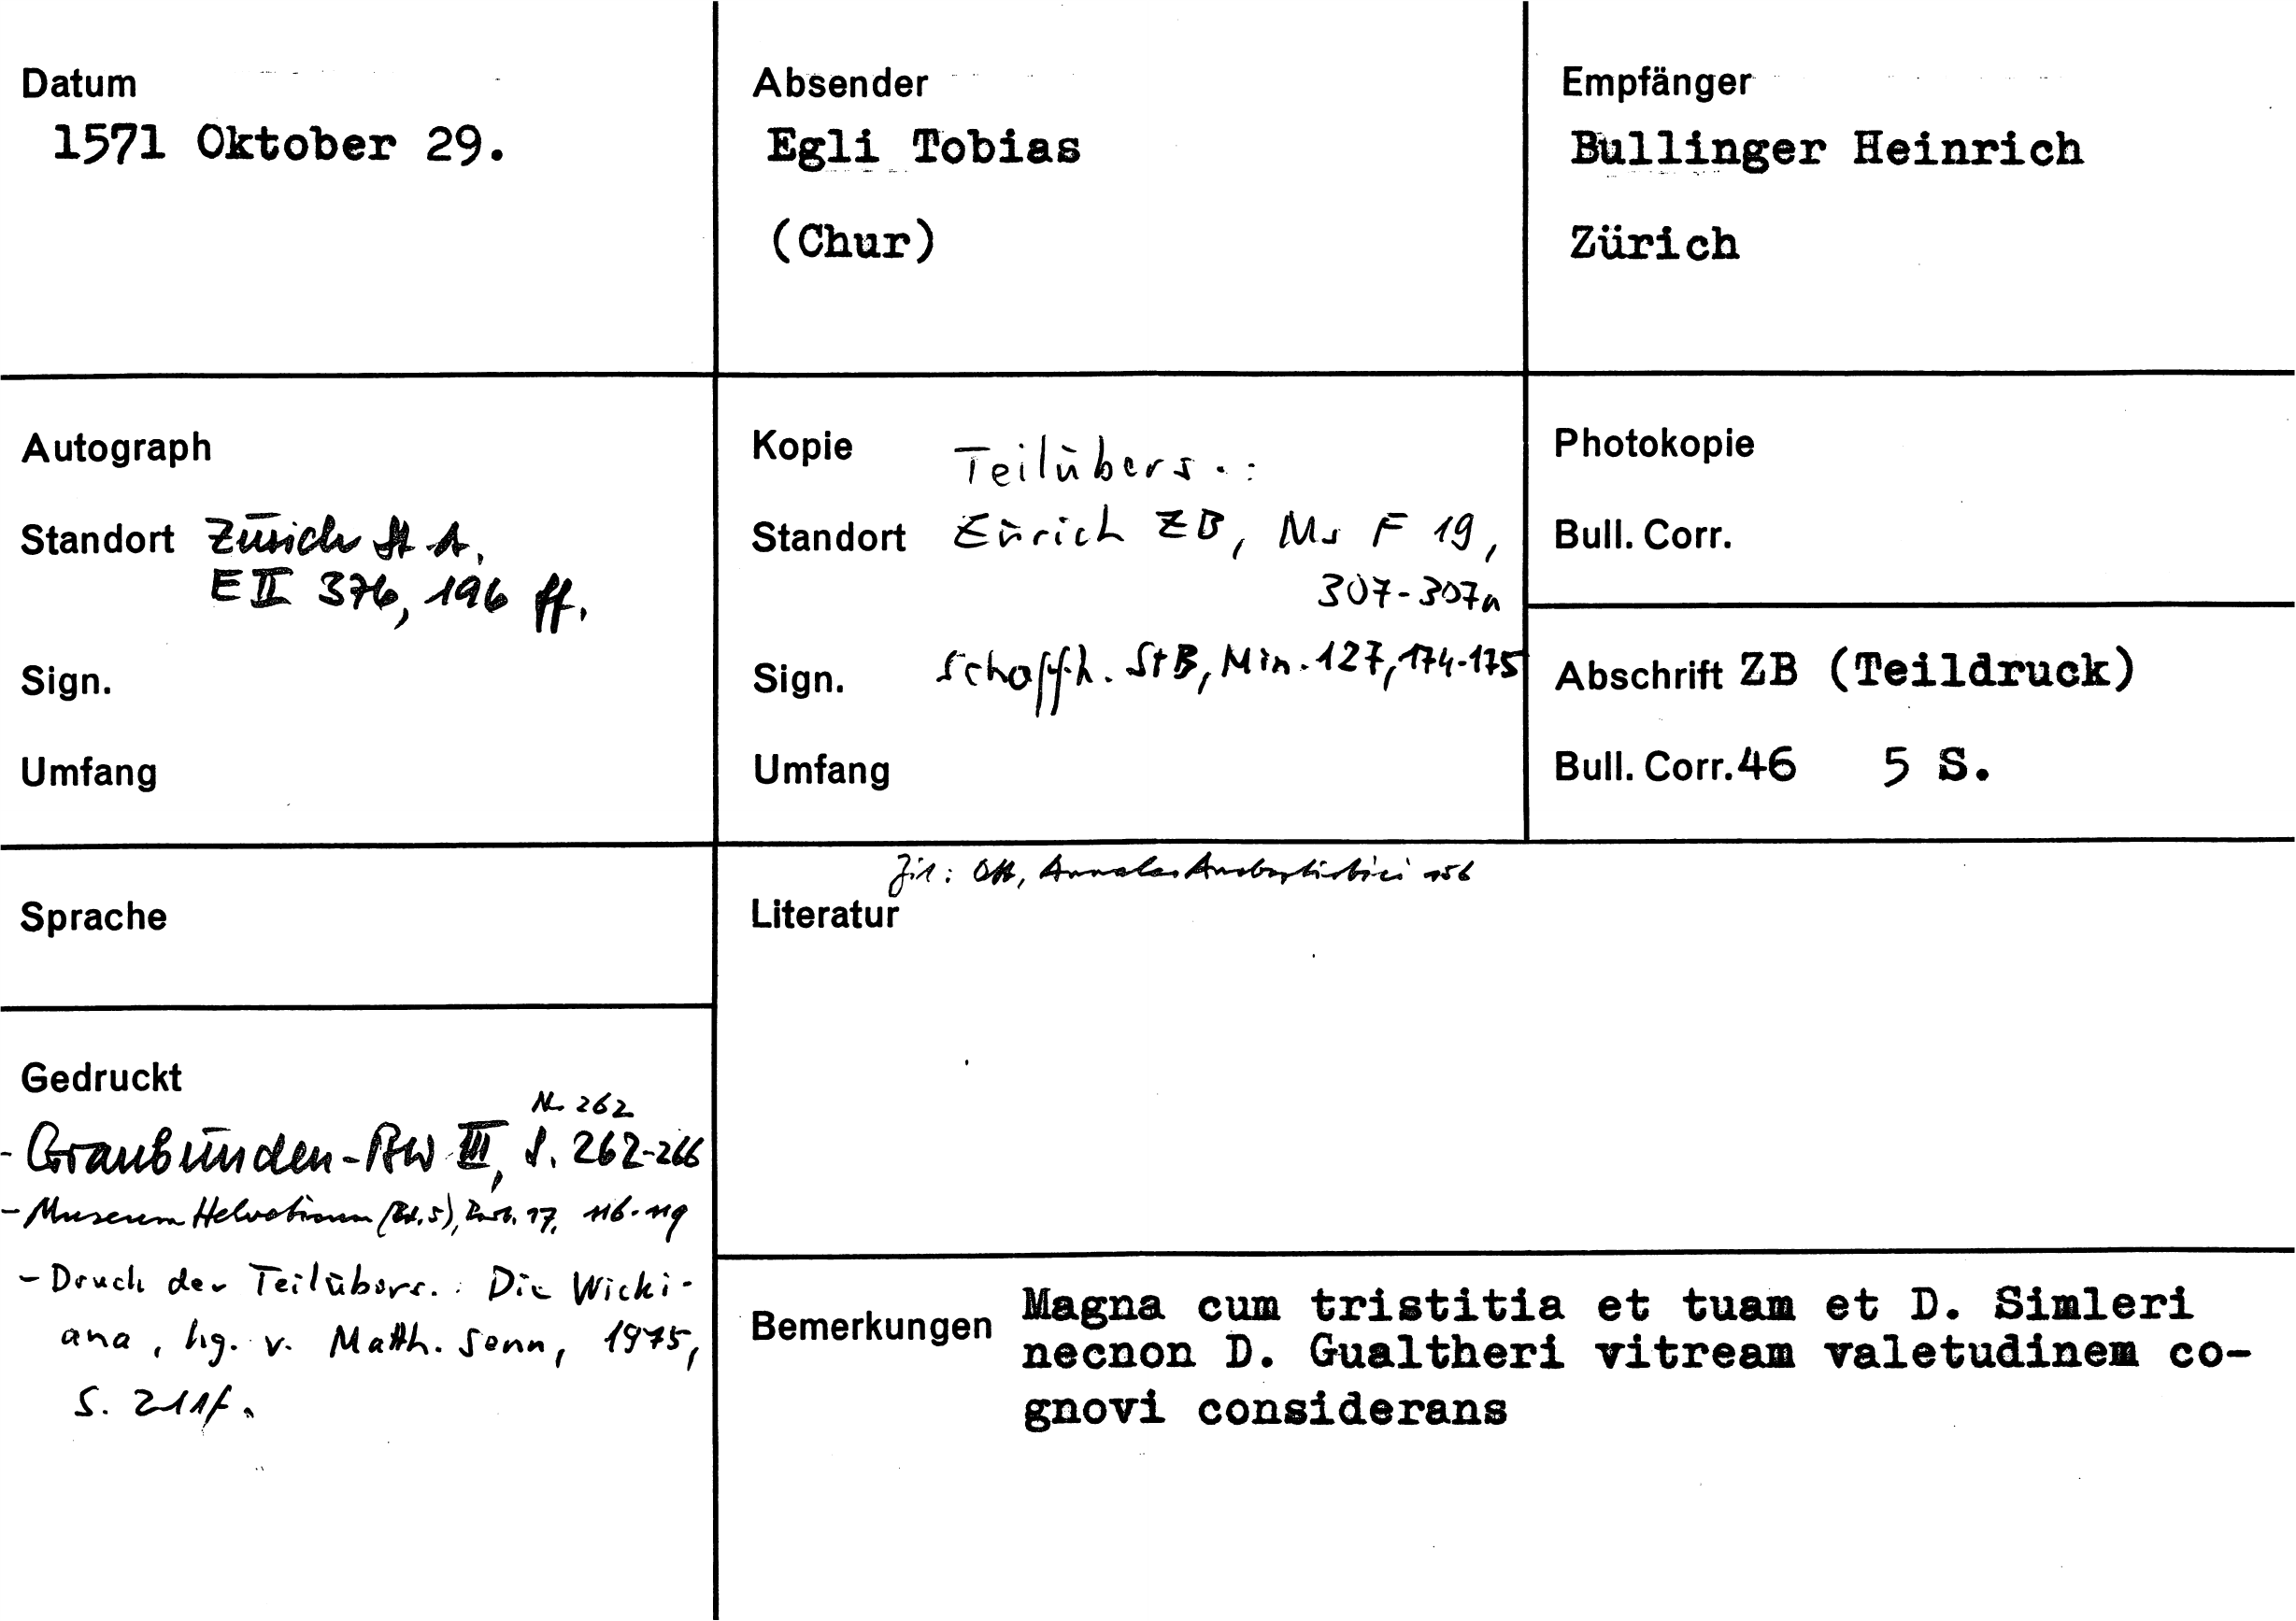 Datum
1571 Oktober 29.
Absender
Egli Tobias
(Chur)
Empfänger
Bullinger Heinrich
Zürich
Autograph
Standort Zürich StA.
E II 376, 196 ff.
Sign.
Umfang
Kopie Teilübers.:
Standort Zürich ZB, Ms F 19,
307-307a
Sign. Schaffh. StB, Min. 127, 174-175
Umfang
Photokopie
Bull. Corr.
Abschrift ZB (Teildruck)
Bull. Corr. 46 5 S.
Sprache
Zit: Ott, Annales Anabaptistici 156
Literatur
Gedruckt
Nr. 262
- Graubünden-BW III, S. 262-266
- Museum Helveticum (Bd. 5), 17, 116-119
- Druck der Teilübers.: Die Wicki-
ana, hg. v. Matth. Senn, 1975,
S. 211f.
Bemerkungen Magna cum tristitia et tuam et D. Simleri
necnon D. Gualtheri vitream valetudinem co-
gnovi considerans